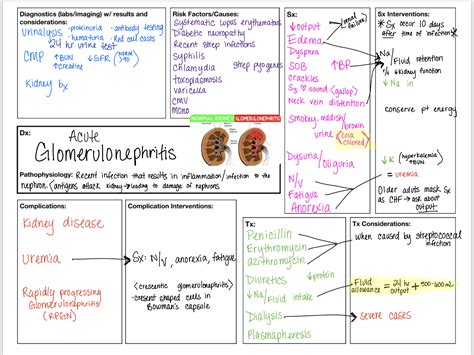 Diagnostics (labs/imaging) w/ results and
considerations:
urinalysis - proteinuria - antibody testing
- hematuria - Red cell casts
24 hr urine test
CMP ↑BUN ↓GFR (normal >90)
↑creatine
Kidney bx
Risk Factors/Causes:
Systematic Lupus erythematosus
Diabetic neuropathy
Recent strep infections
syphilis
Chlamydia strep pyogenes
toxoplasmosis
varicella
cmv
mono
NORMAL KIDNEY GLOMERULONEPHRITIS
Dx:
Acute
Glomerulonephritis
Pathophysiology: Recent infection that results in inflammation/infection to the
nephron. (antigens attack kidney → leading to damage of nephrons
Sx:
↓output (renal failure)
Edema
Dyspnea
SOB ↑BP
crackles
S3 sound (gallop)
Neck vein distention
Smokey, reddish/brown
urine (cola colored)
Dysuria/Oliguria
N/V
Fatigue
Anorexia
Sx Interventions:
* Sx occur 10 days
after time of infection *
Na/Fluid retention
r/t ↓ kidney function
↓ Na in
conserve pt energy
↓K (hyperkalemia) + ↑BUN
= uremia
Older adults mask Sx
as CHF → ask about
output
Complications:
Kidney disease
Uremia
Rapidly progressing
Glomerulonephritis
(RPGN)
Complication Interventions:
Sx: N/V, anorexia, fatigue
(crescentic glomerulonephritis)
- present shaped cells in
Bowman's capsule
Tx:
Penicillin
Erythromycin
azithromycin
Diuretics ↓protein
↓Na/Fluid intake
Dialysis
Plasmapheresis
Tx Considerations:
when caused by streptococcal
infection
Fluid allowance = 24 hr output + 500-600mL
severe cases